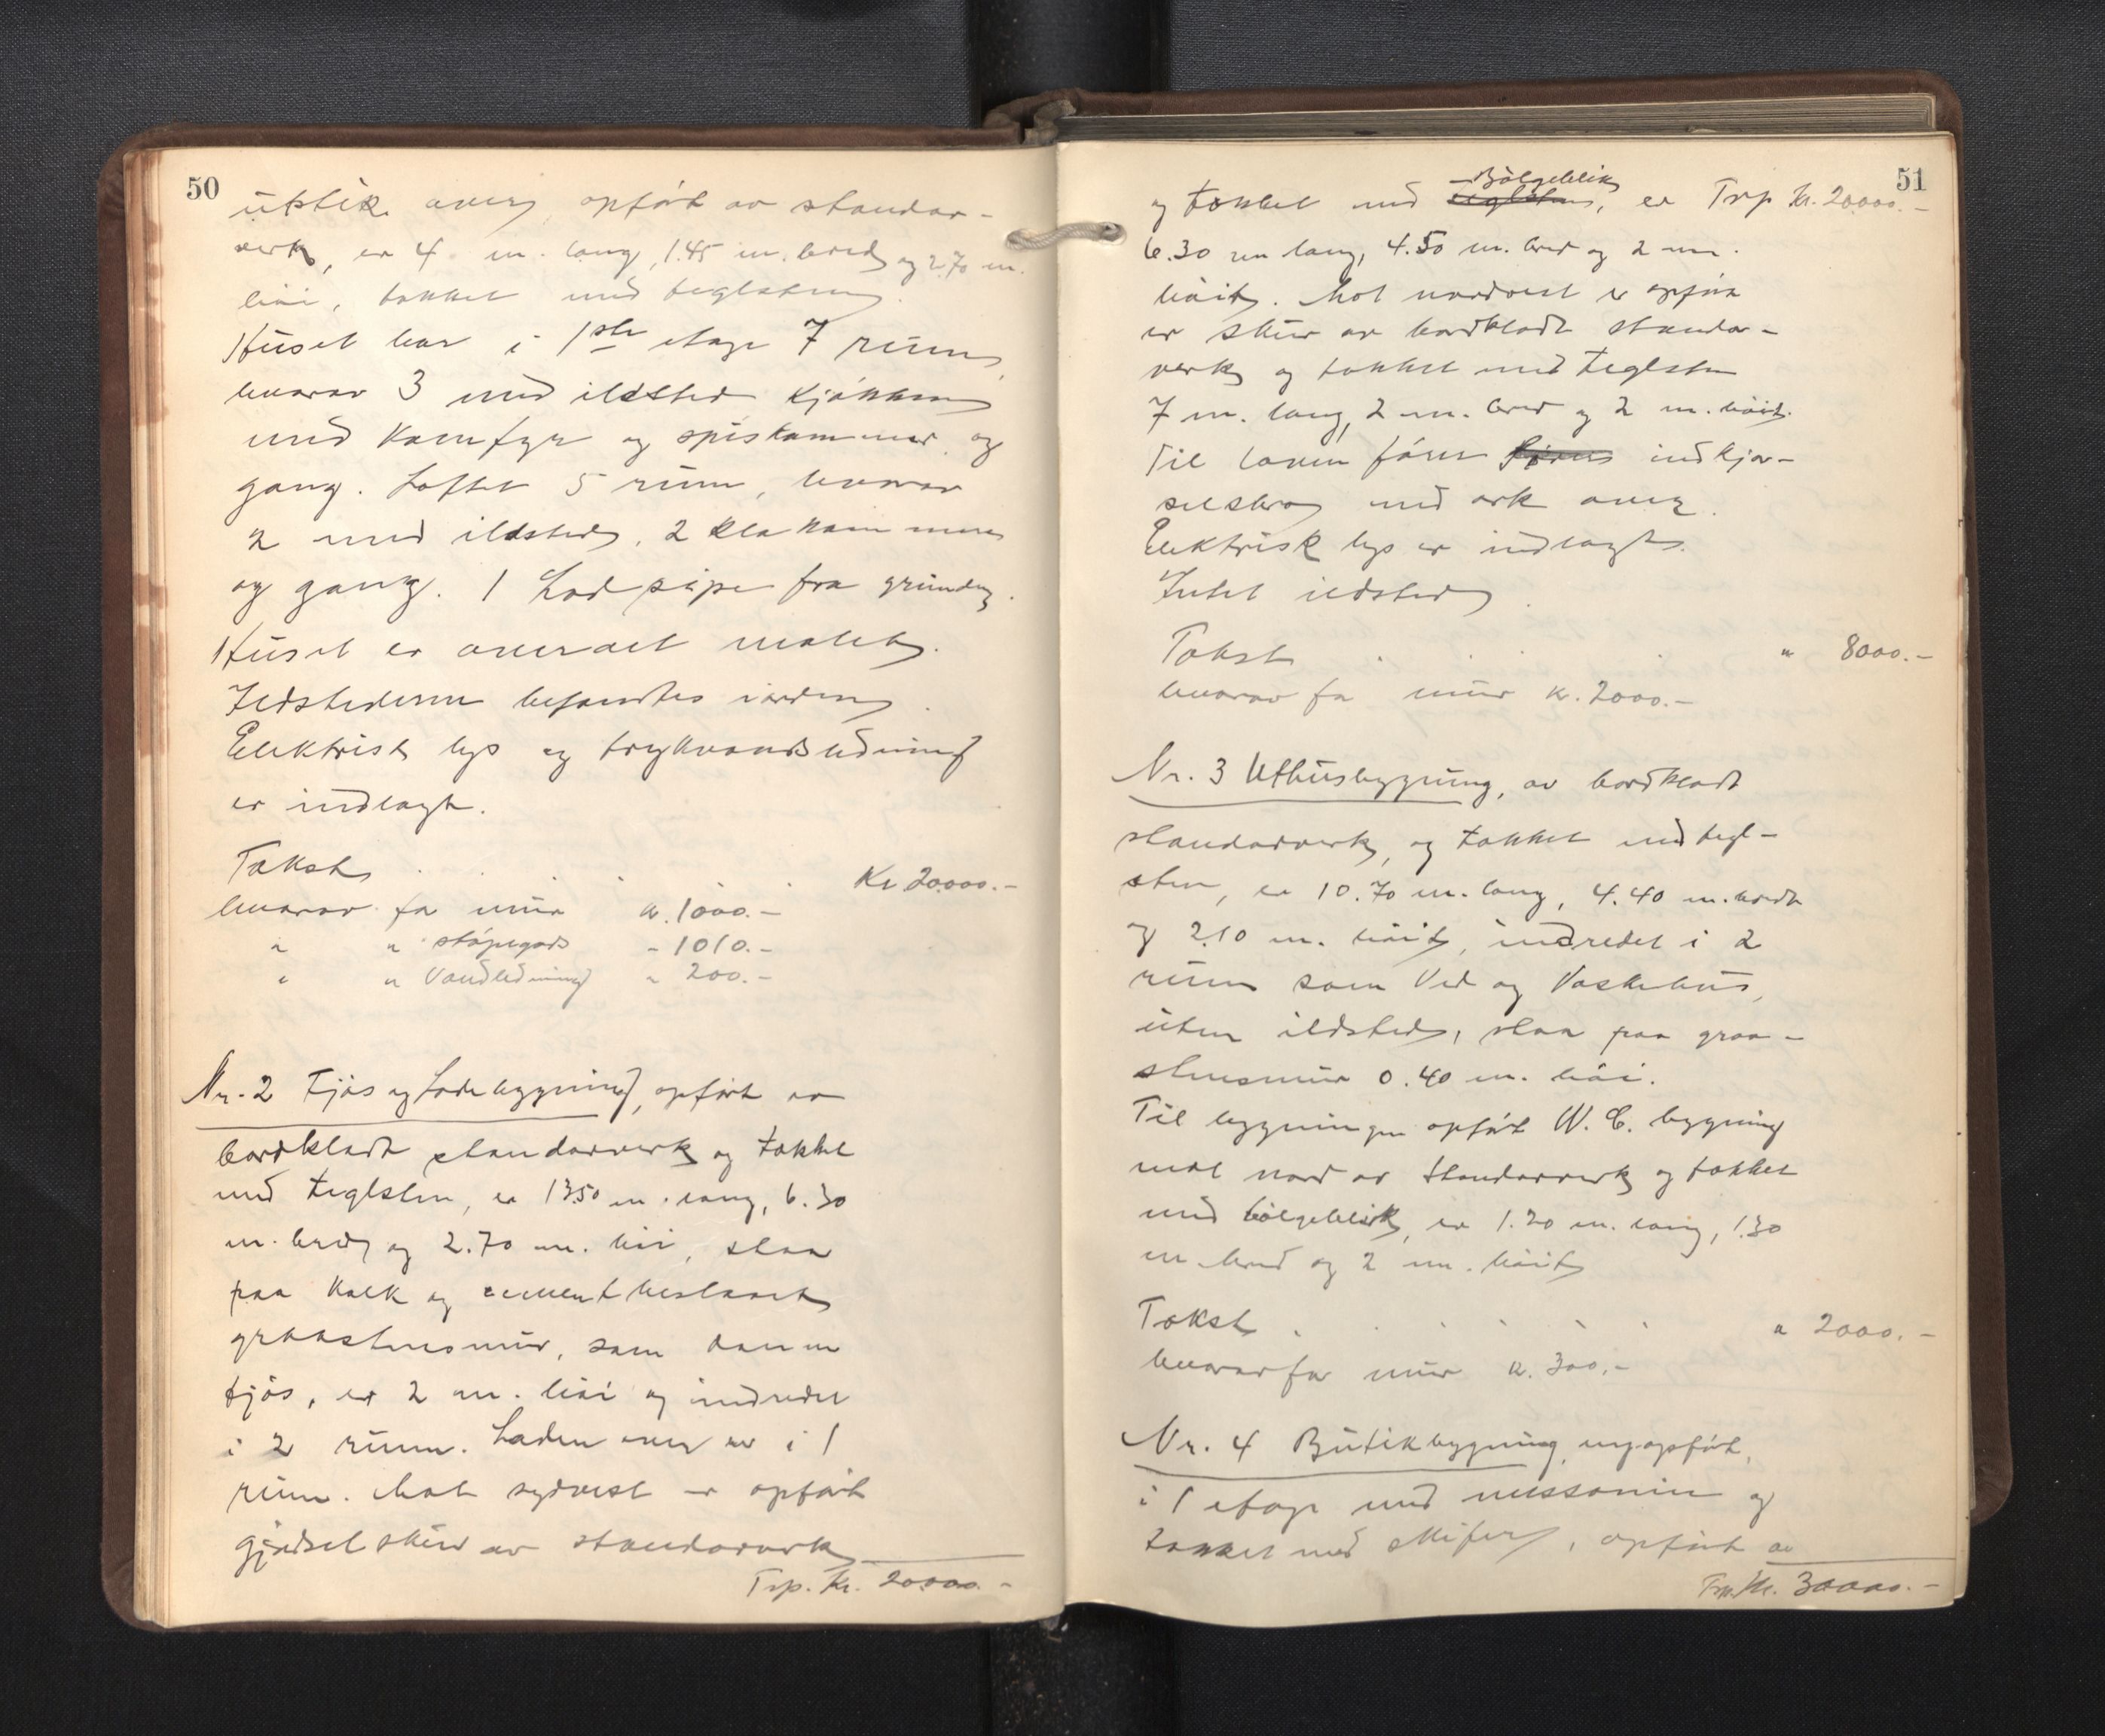 50
utstik over, opført av standar-
verk, er 4 m. lang, 1.45 m. bred og 2.70 m.
høi, tækket med teglsten.
Huset har i 1ste etage 7 rum,
hvorav 3 med ildsted, kjøkken
med Komfyr og spiskammer og
gang. Loftet 5 rum, hvorav
2 med ildsted, 2 klækammere
og gang. 1 Lodpipe fra grunden.
Huset er overalt malet.
Ildstederne befandtes i orden.
Elektrisk lys og trykvandsledning
er indlagt.
Takst . . . . Kr. 20.000.-
hvorav for mur kr. 1000.-
" " støpegods - 1010.-
" " Vandledning " 200.-
Nr. 2 Fjøs og Ladebygning, opført av
bordklædt standarverk og tækket
med teglsten, er 13.50 m. lang, 6.30
m. bred og 2.70 m. høi, staar
paa Kalk og cement beslaaet
graastensmur, som danner
fjøs, er 2 m. høi og indredet
i 2 rum. Laden over er i 1
rum. Mot sydvest er opført
gjødselskur av standarverk
Trp. Kr. 20.000.-
51
Bølgeblik
og tækket med teglsten, er Trp Kr. 20000.-
6.30 m lang, 4.50 m. bred og 2 m.
høit. Mot nordvest er opført
er skur av bordklædt standar-
verk og tækket med teglsten
7 m. lang, 2 m. bred og 2 m. høit.
Til laven fører indkjør-
selsbro med ark over.
Elektrisk lys er indlagt.
Intet ildsted.
Takst . . . " 8000.-
hvorav for mur kr. 2000.-
Nr. 3 Uthusbygning, av bordklædt
standarverk, og tækket med tegl-
sten, er 10.70 m. lang, 4.40 m. bredt
og 2.10 m. høit, indredet i 2
rum som Ved og Vaskehus,
uten ildsted, staar paa graa-
stensmur 0.40 m. høi.
Til bygningen opført W.C. bygning
mot nord av standarverk og tækket
med bølgeblik, er 1.20 m. lang, 1.30
m bred og 2 m. høit
Takst . . . . . " 2000.-
hvorav for mur kr. 300.-
Nr. 4 Butikbygning, nyopført,
i 1 etage med messanin og
tækket med skifer, opført av
Trp. Kr. 30000.-